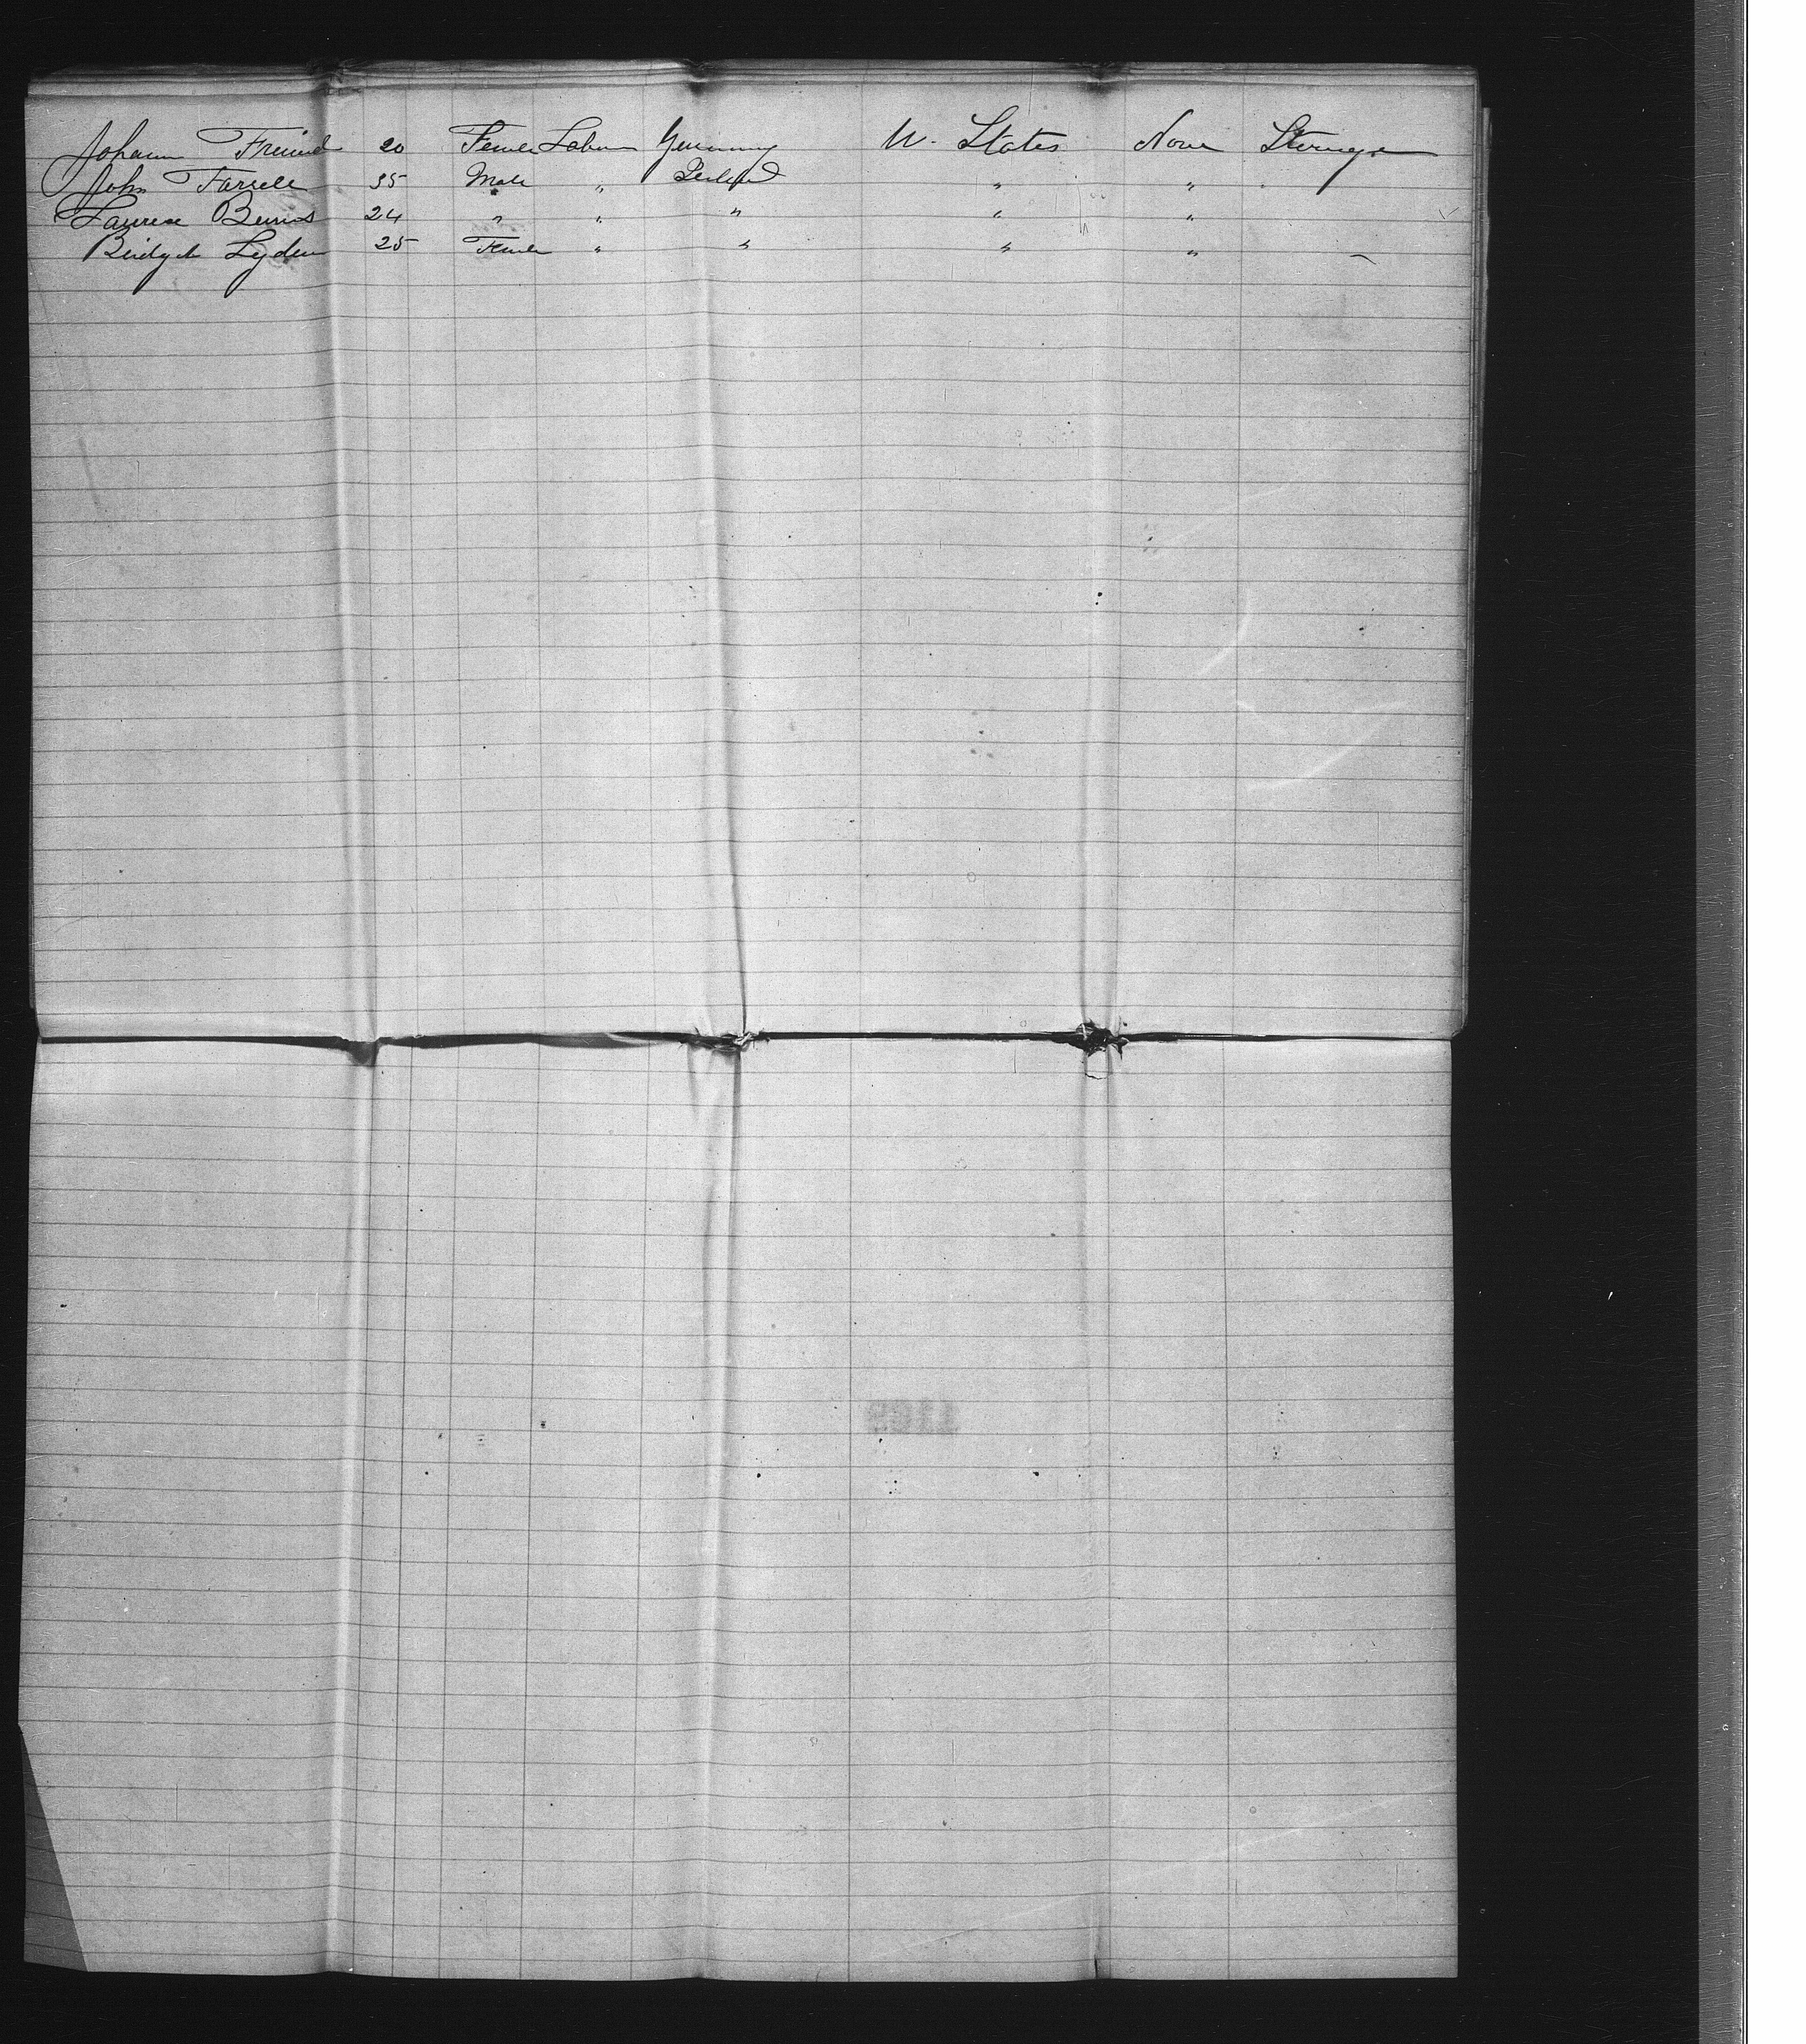 Johann Freund 20 Female Labour Germany U. States None Steerage
John Farrell 35 Male " Ireland " "
Laurence Burns 24 " " " " "
Bridget Lyden 25 Female " " " "